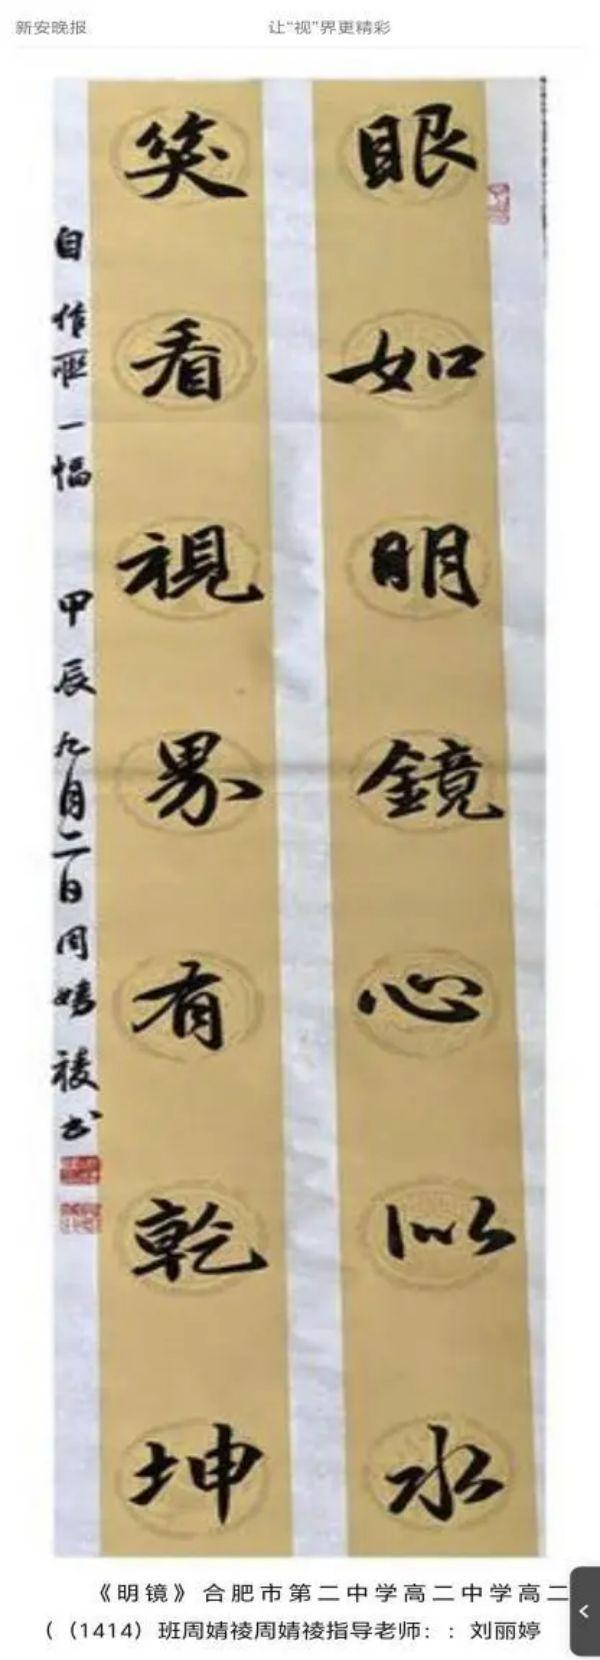 新安晚报
让“视”界更精彩
眼如明鏡心似水
笑看視界有乾坤
自作联一幅 甲辰九月二日周婧祾书
《明镜》合肥市第二中学高二中学高二
（（1414）班周婧祾周婧祾指导老师：：刘丽婷